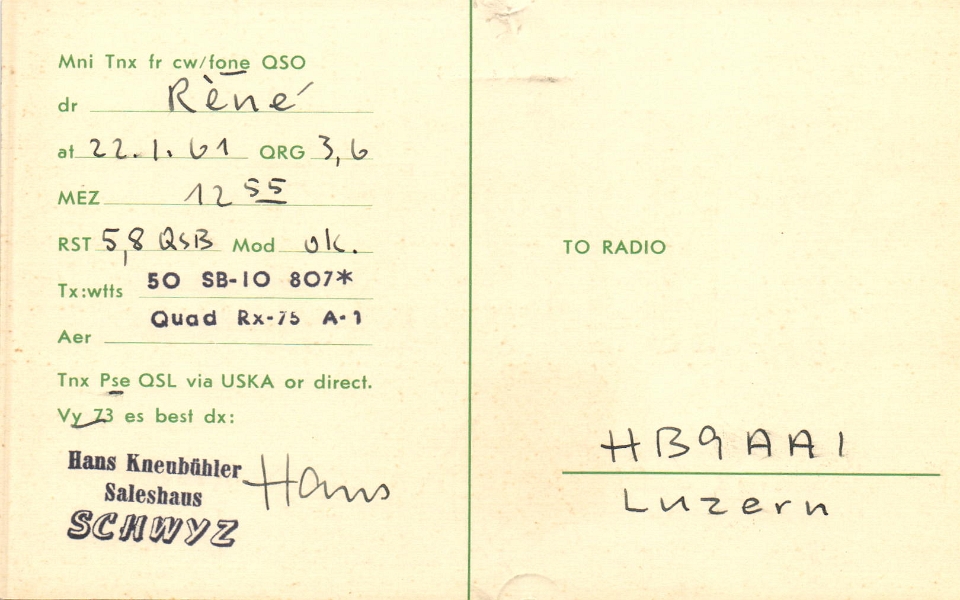 Mni Tnx fr cw/fone QSO
dr Rèné
at 22.1.61 QRG 3,6
MEZ 12 55
RST 5,8 QSB Mod ok.
Tx:wtts 50 SB-10 807*
Quad Rx-75 A-1
Aer
Tnx Pse QSL via USKA or direct.
Vy 73 es best dx:
Hans Kneubühler Hans
Saleshaus
SCHWYZ
TO RADIO
HB9AAI
Luzern